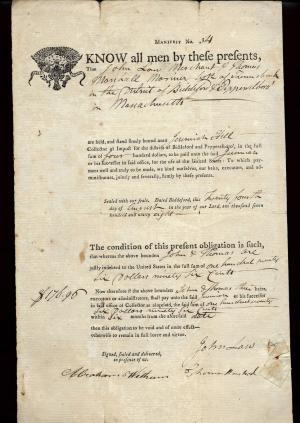 MANIFEST No. 34
KNOW all men by these presents,
That John Low Merchant & Thomas
Maxwell Mariner both of Kennebunk
in the District of Biddeford & Pepperelboro
in Massachusetts
are held, and stand firmly bound unto Jeremiah Hill
Collector of Impost for the district of Biddeford and Pepperelboro, in the full
sum of four hundred dollars, to be paid unto the said Jeremiah
or his successor in said office, for the use of the United States: To which payment
well and truly to be made, we bind ourselves, our heirs, executors, and administrators,
jointly and severally, firmly by these presents.
Sealed with our seals. Dated Biddeford, this Twenty fourth
day of August in the year of our Lord, one thousand seven
hundred and ninety eight
The condition of this present obligation is such,
that whereas the above bounden John & Thomas are
justly indebted to the United States in the full sum of one hundred ninety
six Dollars ninety six Cents
$196.96
Now therefore if the above bounden John & Thomas their
heirs, executors or administrators, shall pay unto the said Jeremiah or his successor
in said office of Collector as aforesaid, the full sum of one hundred ninety
six Dollars ninety six Cents
within six months from the aforesaid date
then this obligation to be void and of none effect—
otherwise to remain in full force and virtue.
Signed, sealed and delivered,
in presence of us.
John Low
Abraham
Thomas